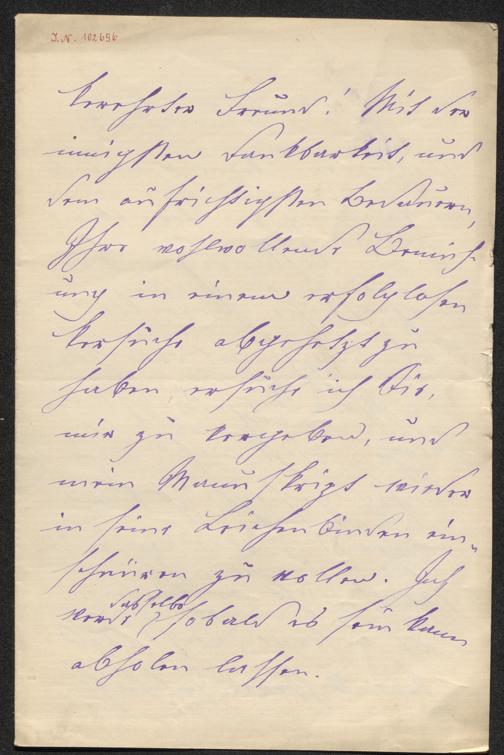 I.N. 102696
Verehrter Freund! Mit der
innigsten Dankbarkeit, und
dem aufrichtigsten Bedauern,
Ihre wohlwollende Bemüh-
ung in einem erfolglosen
Versuche abgehetzt zu
haben ersuche ich Sie,
mir zu vergeben, und
mein Manuskript wieder
in seine Leichenbinden ein-
schnüren zu wollen. Ich
werde dasselbe sobald es sein kann
abholen lassen.